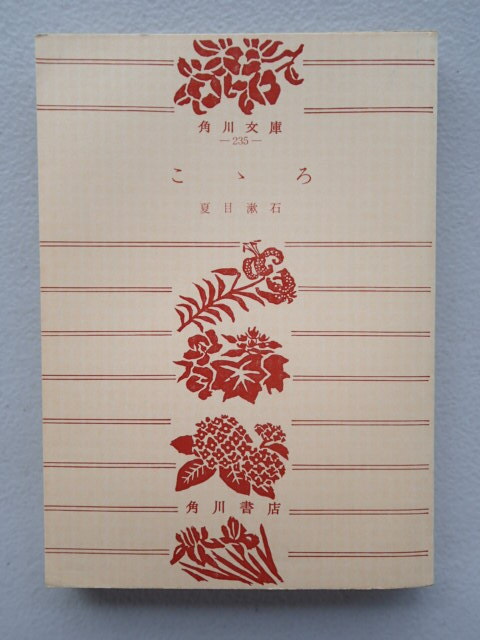 角川文庫
—235—
こゝろ
夏目漱石
角川書店